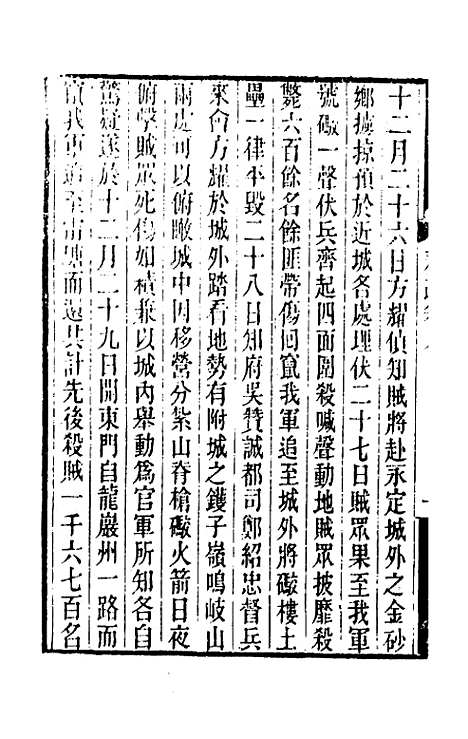 十二月二十六日方耀偵知賊將赴永定城外之金砂
鄉擄掠預於近城各處埋伏二十七日賊眾果至我軍
號礮一聲伏兵齊起四面圍殺喊聲動地賊眾披靡殺
斃六百餘名餘匪帶傷回竄我軍追至城外將礮樓土
壘一律平毀二十八日知府吳贊誠都司鄭紹忠督兵
來會方耀於城外踏看地勢有附城之鑊子嶺鳴岐山
兩處可以俯瞰城中因移營分紮山脊槍礮火箭日夜
俯擊賊眾死傷如積兼以城內舉動為官軍所知各自
驚疑遂於十二月二十九日開東門自龍巖州一路而
竄我軍追至雷而還共計先後殺賊一千六七百名